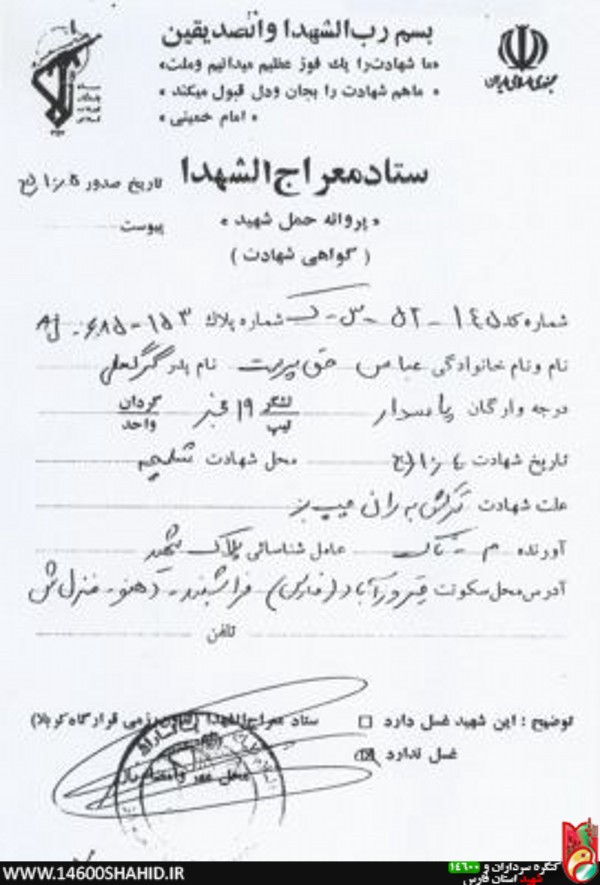 بسم رب الشهدا والصدیقین
«ما شهادت را یك فوز عظیم میدانیم وملت»
« ماهم شهادت را بجان ودل قبول میکند »
« امام خمینی »
جمهوری اسلامی ایران
ستاد معراج الشهدا
تاریخ صدور
« پروانه حمل شهید »
پیوست
( گواهی شهادت )
شماره کد ۱۴۵ - ۵۲ - س - ک شماره پلاك ۱۵۳ - ۶۸۵ - AJ
نام ونام خانوادگی عباس حق پرست نام پدر گرگعلی
درجه وارگان پاسدار لشگر ۱۹ فجر گردان
تیپ واحد
تاریخ شهادت محل شهادت شلمچه
علت شهادت ترکش به ران
آورنده م - عامل شناسائی پلاک
آدرس محل سکونت فیروزآباد (فارس) فراشبند - دهنو - منزلش
تلفن
توضیح : این شهید غسل دارد □ ستاد معراج الشهدا قرارگاه کربلا)
غسل ندارد ☒
محل مهر وامضاء
WWW.14600SHAHID.IR
کنگره سرداران و ۱۴۶۰۰
شهید استان فارس